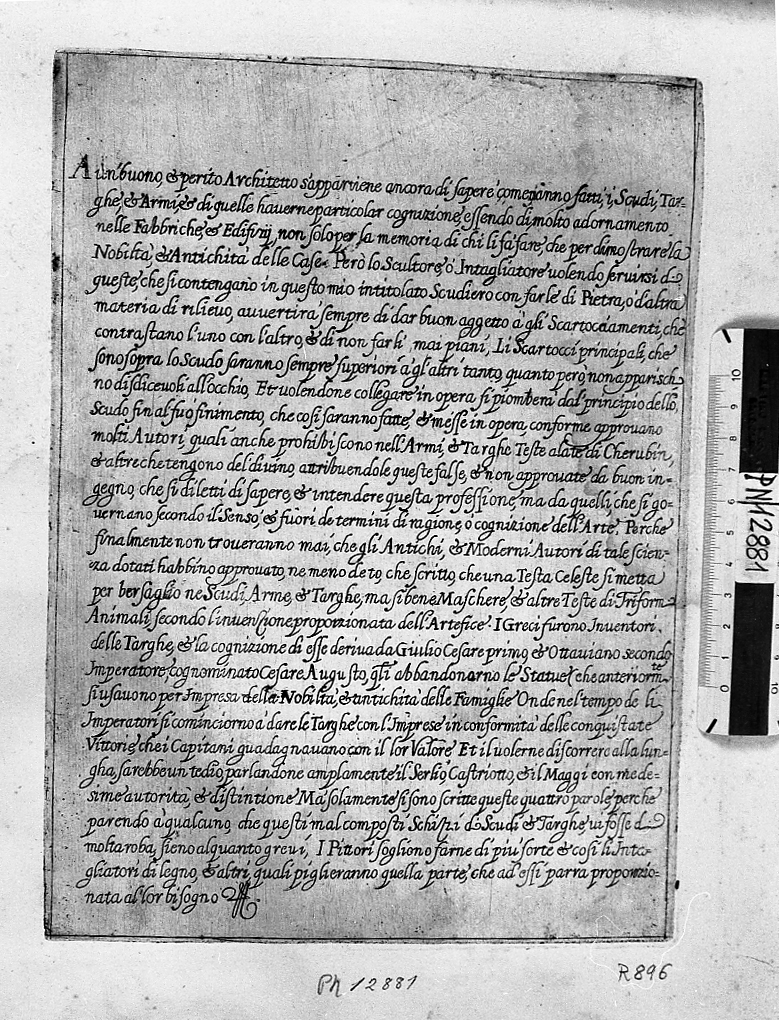 A un' buono, & perito Architetto s'apparviene ancora di sapere come vanno fatti, i, Scudi, Tar-
ghe, & Armi, & di quelle haverne particolar cognizione, essendo di molto adornamento
nelle Fabbriche, & Edifizij, non solo per la memoria di chi li fà fare, che per dimostrare la
Nobiltà, & Antichità delle Case. Però lo Scultore, ò Intagliatore volendo servirsi di
queste, che si contengano in questo mio intitolato Scudiero con farle di Pietra, ò d'altra
materia di rilievo, auvertirà sempre di dar buon aggetto à gli Scartocciamenti, che
contrastano l'uno con l'altro, & di non farli mai piani, Li Scartocci principali, che
sono sopra lo Scudo saranno sempre superiori à gl'altri tanto, quanto però non apparisch
no disdicevoli all'occhio, Et volendone collegare in opera si piombera dal principio dello
Scudo fin'al suo finimento, che così saranno fatte, & messe in opera, conforme approvano
molti Autori, quali anche prohibiscono nell'Armi, & Targhe Teste alate di Cherubin,
& altre che tengono del divino, attribuendole queste false, & non approvate da buon in-
gegno, che si diletti di sapere, & intendere questa professione, ma da quelli, che si go-
vernano secondo il Senso, & fuori de termini di ragione, ò cognizione dell'Arte, Perche
finalmente non troveranno mai, che gli Antichi, & Moderni Autori di tale scien-
za dotati habbino approvato, ne meno deto, che scritto, che una Testa Celeste si metta
per bersaglio ne Scudi, Arme, & Targhe, ma si bene Maschere, & altre Teste di Triform
Animali, secondo l'invenzione proporzionata dell'Artefice. I Greci furono Inventori
delle Targhe, & la cognizione di esse deriva da Giulio Cesare primo, & Ottaviano secondo
Imperatore, cognominato Cesare Augusto, qli abbandonarno le Statue, che anteriormte
si usavono per Impresa della Nobiltà, & antichità delle Famiglie Onde nel tempo de li
Imperatori si cominciorno à dare le Targhe con l'Imprese in conformità delle conquistate
Vittorie, che i Capitani guadagnavano con il lor Valore Et il volerne discorrere alla lun-
gha, sarebbe un tedio, parlandone amplamente il Serlio, Castriotto, & il Maggi con mede-
sime autorità, & distintione Mà solamente si sono scritte queste quattro parole, perche
parendo à qualcuno, che questi mal composti Schiszi di Scudi & Targhe, vi fosse di
molta roba, sieno alquanto grevi, I Pittori sogliono farne di più sorte & così li Inta-
gliatori di legno, & altri, quali piglieranno quella parte, che ad essi parra proporzio-
nata al lor bisogno
10
9
8
7
6
5
4
3
2
1
0
PN12881
10
PN 12881
R896